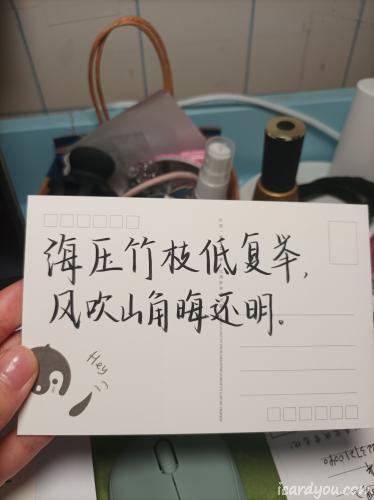 海压竹枝低复举，
风吹山角晦还明。
Hey
icardyou.com